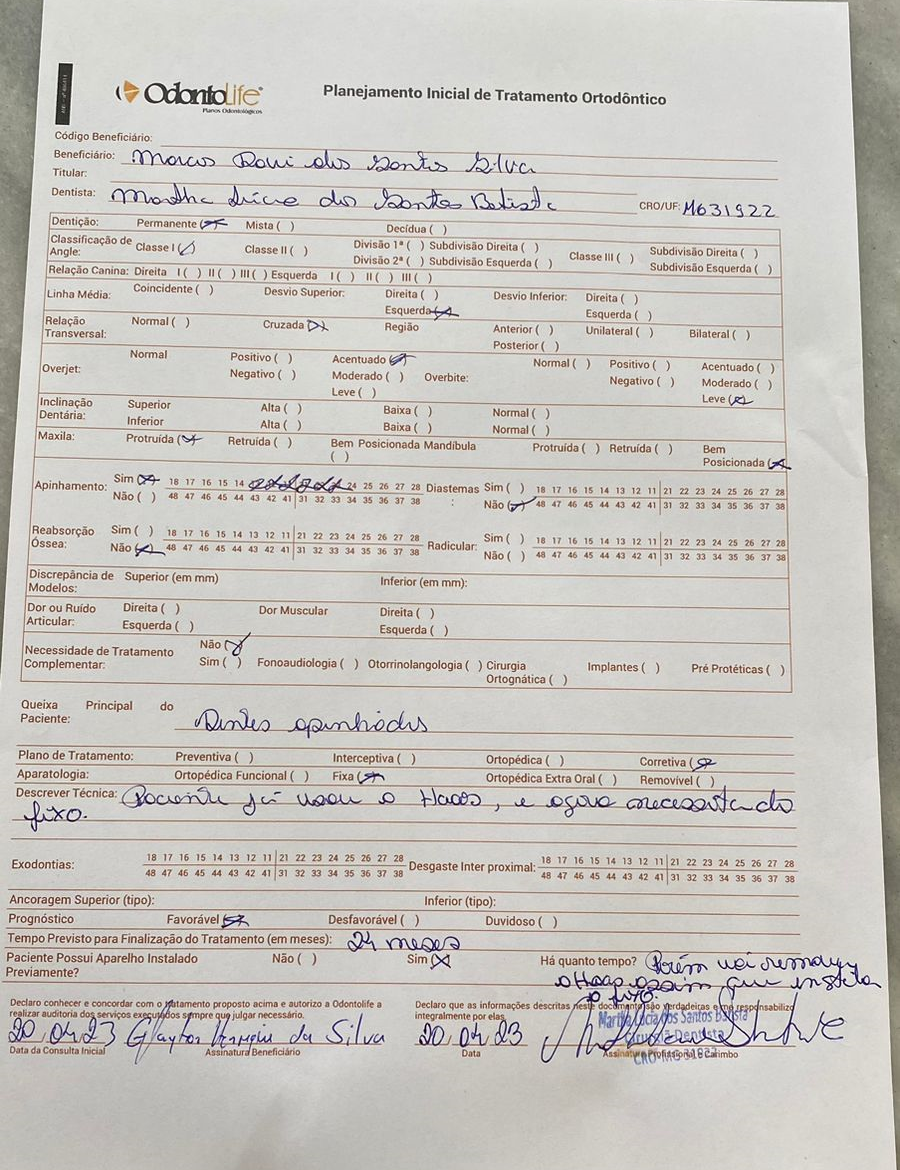 OdontoLife
Planos Odontológicos
Planejamento Inicial de Tratamento Ortodôntico
Código Beneficiário:
Beneficiário: Marcos Davi dos Santos Silva
Titular:
Dentista: Martha Lúcia dos Santos Batista CRO/UF: MG31922
Dentição: Permanente (x) Mista ( ) Decídua ( )
Classificação de Angle: Classe I (x) Classe II ( ) Divisão 1ª ( ) Subdivisão Direita ( ) Classe III ( ) Subdivisão Direita ( )
Divisão 2ª ( ) Subdivisão Esquerda ( ) Subdivisão Esquerda ( )
Relação Canina: Direita I ( ) II ( ) III ( ) Esquerda I ( ) II ( ) III ( )
Linha Média: Coincidente ( ) Desvio Superior: Direita ( ) Desvio Inferior: Direita ( )
Esquerda (x) Esquerda ( )
Relação Transversal: Normal ( ) Cruzada (x) Região Anterior ( ) Unilateral ( ) Bilateral ( )
Posterior ( )
Overjet: Normal Positivo ( ) Acentuado (x) Overbite: Normal ( ) Positivo ( ) Acentuado ( )
Negativo ( ) Moderado ( ) Negativo ( ) Moderado ( )
Leve ( ) Leve (x)
Inclinação Dentária: Superior Alta ( ) Baixa ( ) Normal ( )
Inferior Alta ( ) Baixa ( ) Normal ( )
Maxila: Protruída (x) Retruída ( ) Bem Posicionada ( ) Mandíbula Protruída ( ) Retruída ( ) Bem Posicionada (x)
Apinhamento: Sim (x) 18 17 16 15 14 24 25 26 27 28 Diastemas: Sim ( ) 18 17 16 15 14 13 12 11 21 22 23 24 25 26 27 28
Não ( ) 48 47 46 45 44 43 42 41 31 32 33 34 35 36 37 38 Não (x) 48 47 46 45 44 43 42 41 31 32 33 34 35 36 37 38
Reabsorção Óssea: Sim ( ) 18 17 16 15 14 13 12 11 21 22 23 24 25 26 27 28 Radicular: Sim ( ) 18 17 16 15 14 13 12 11 21 22 23 24 25 26 27 28
Não (x) 48 47 46 45 44 43 42 41 31 32 33 34 35 36 37 38 Não ( ) 48 47 46 45 44 43 42 41 31 32 33 34 35 36 37 38
Discrepância de Modelos: Superior (em mm) Inferior (em mm):
Dor ou Ruído Articular: Direita ( ) Dor Muscular Direita ( )
Esquerda ( ) Esquerda ( )
Necessidade de Tratamento Complementar: Não (x)
Sim ( ) Fonoaudiologia ( ) Otorrinolangologia ( ) Cirurgia Ortognática ( ) Implantes ( ) Pré Protéticas ( )
Queixa Principal do Paciente: Dentes apinhados
Plano de Tratamento: Preventiva ( ) Interceptiva ( ) Ortopédica ( ) Corretiva (x)
Aparatologia: Ortopédica Funcional ( ) Fixa (x) Ortopédica Extra Oral ( ) Removível ( )
Descrever Técnica: Paciente já usou o Haas, e agora necessita do
fixo.
Exodontias: 18 17 16 15 14 13 12 11 21 22 23 24 25 26 27 28 Desgaste Inter proximal: 18 17 16 15 14 13 12 11 21 22 23 24 25 26 27 28
48 47 46 45 44 43 42 41 31 32 33 34 35 36 37 38 48 47 46 45 44 43 42 41 31 32 33 34 35 36 37 38
Ancoragem Superior (tipo): Inferior (tipo):
Prognóstico Favorável (x) Desfavorável ( ) Duvidoso ( )
Tempo Previsto para Finalização do Tratamento (em meses): 24 meses
Paciente Possui Aparelho Instalado Previamente? Não ( ) Sim (x) Há quanto tempo? Porém vai remover
o Haas assim que instala
o fixo.
Declaro conhecer e concordar com o tratamento proposto acima e autorizo a Odontolife a
realizar auditoria dos serviços executados sempre que julgar necessário.
Declaro que as informações descritas neste documento são verdadeiras e me responsabilizo
integralmente por elas.
20,04,23 da Silva 20,04,23
Data da Consulta Inicial Assinatura Beneficiário Data Assinatura Profissional e Carimbo
Martha Lúcia dos Santos Batista
Cirurgiã-Dentista
CRO-MG 31922